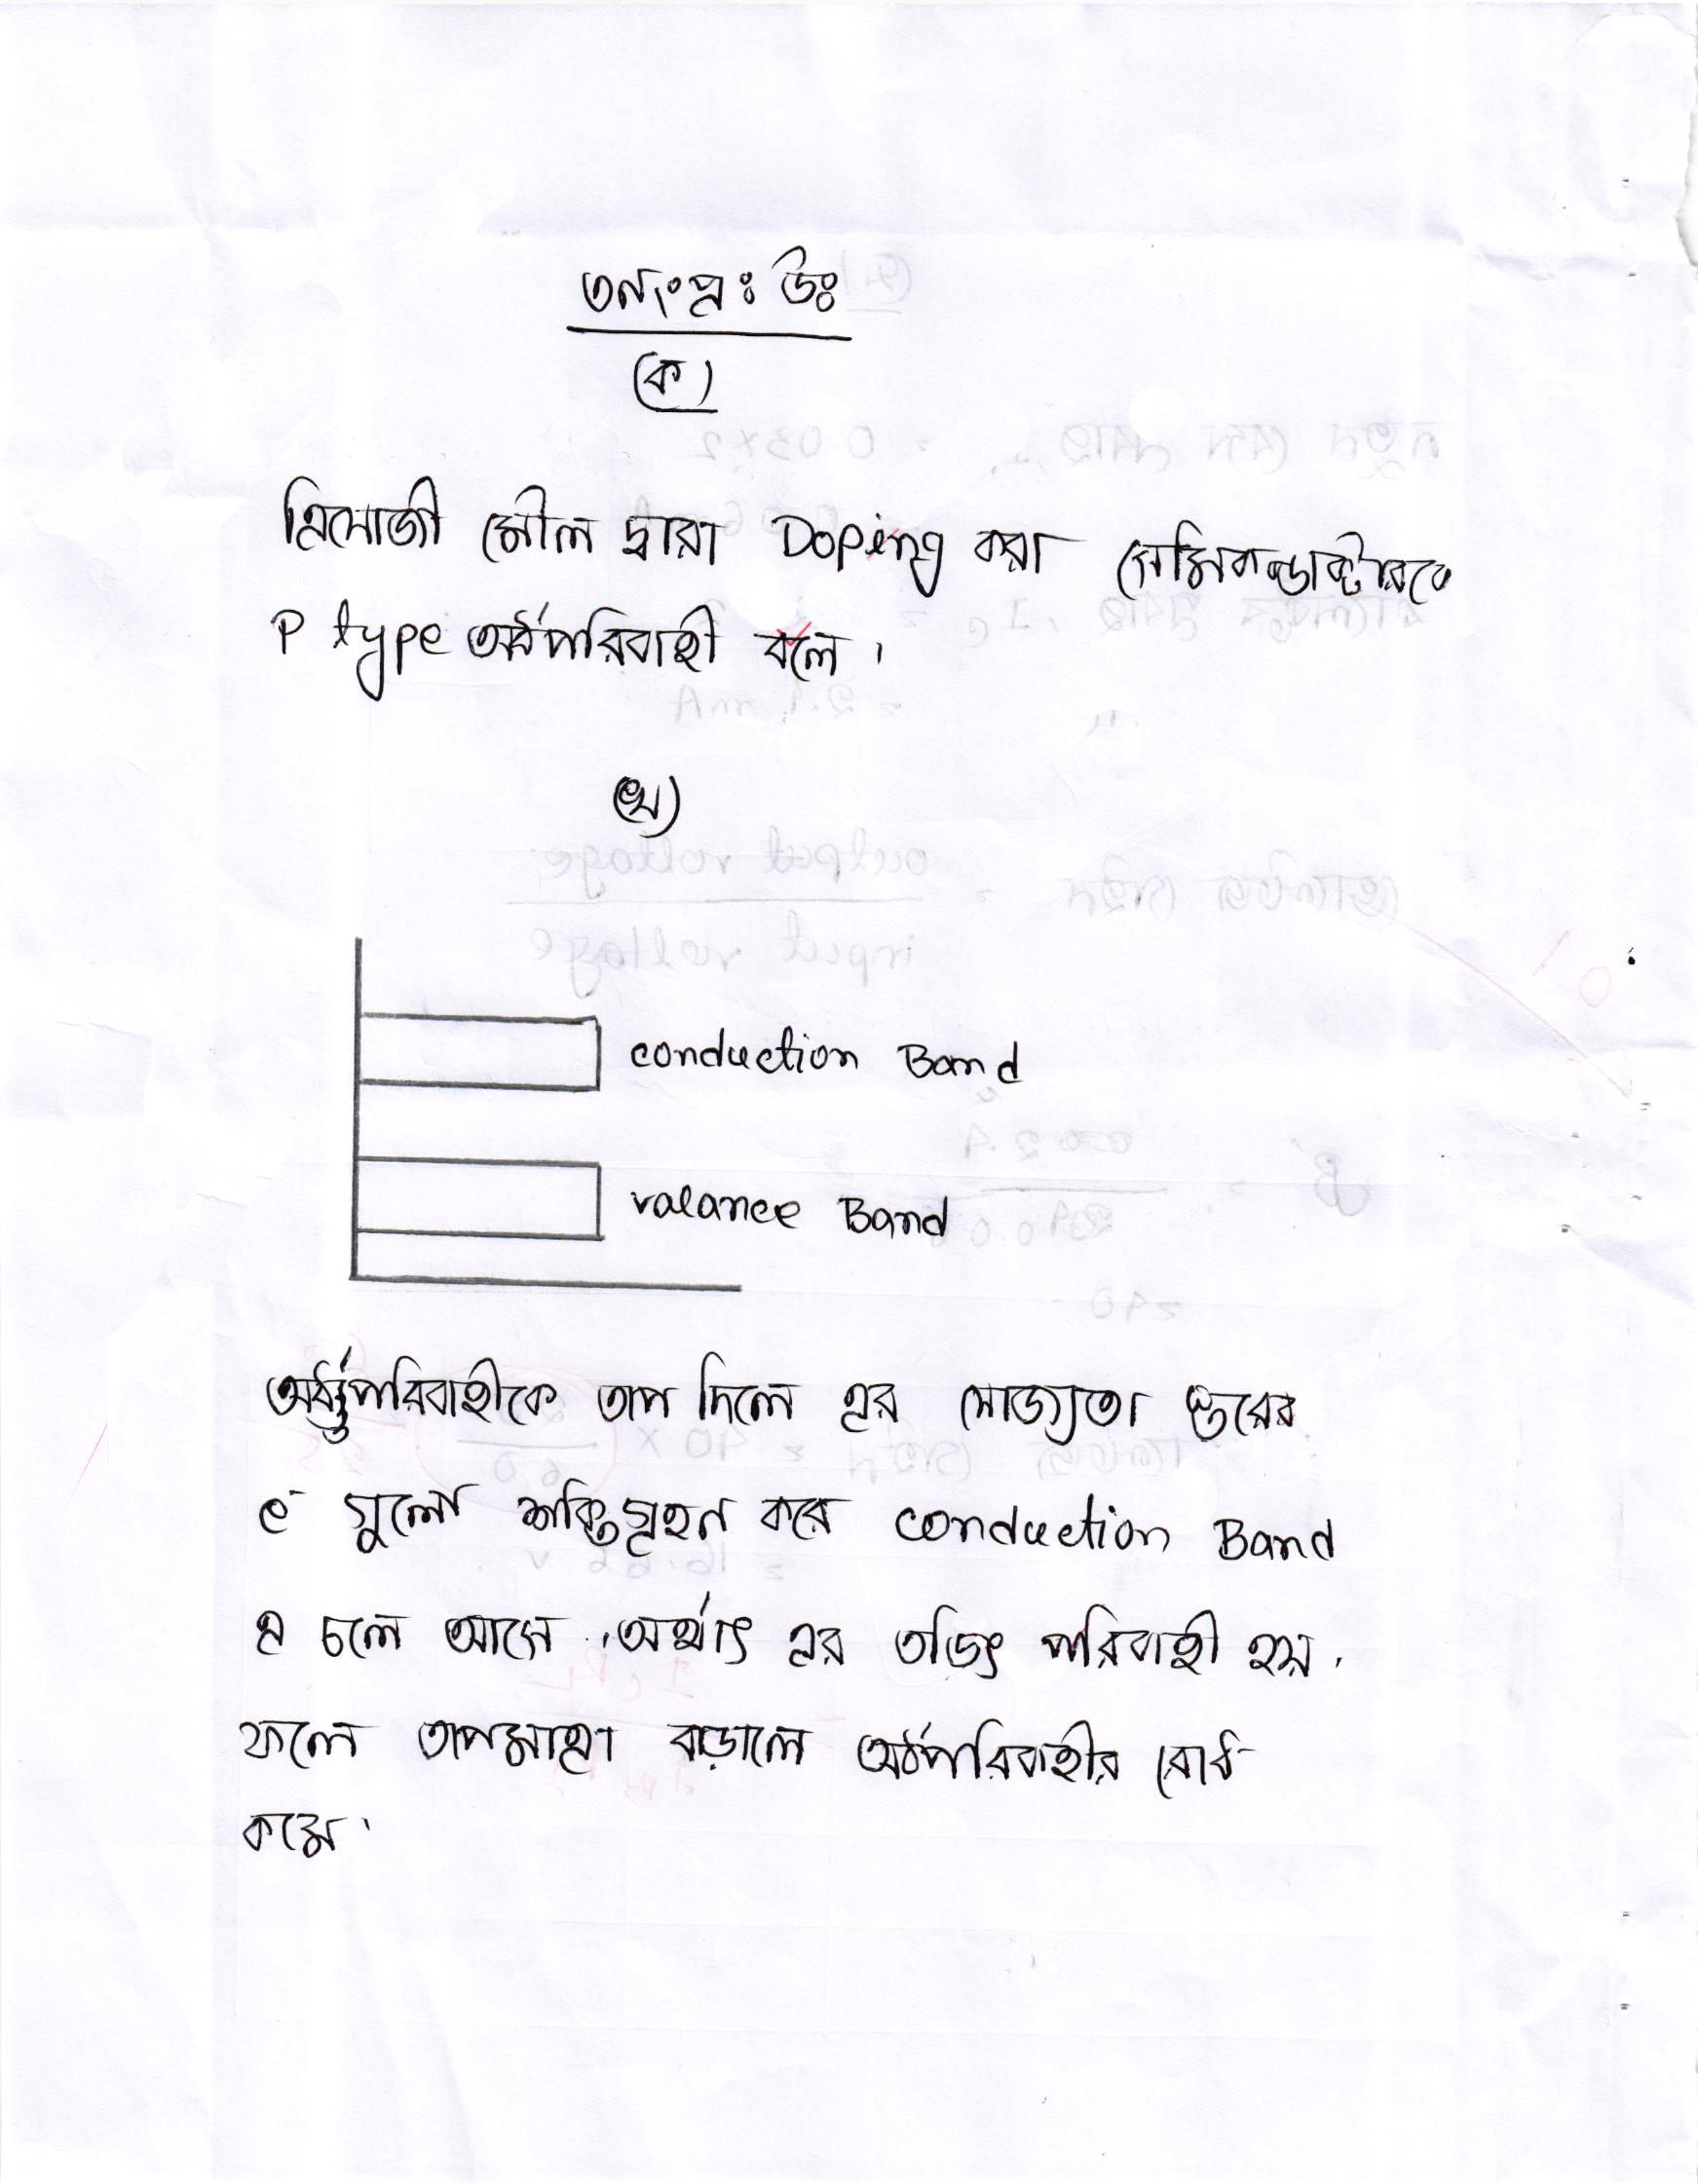 ৩নংপ্রঃ উঃ
(ক)
ত্রিযোজী মৌল দ্বারা Doping করা সেমিকন্ডাক্টারকে
P type অর্ধপরিবাহী বলে।
(খ)
conduction Band
valance Band
অর্ধপরিবাহীকে তাপ দিলে এর যোজ্যতা স্তরের
e⁻ গুলো শক্তিগ্রহন করে conduction Band
এ চলে আসে। অর্থাৎ এর তড়িৎ পরিবাহী হয়।
ফলে তাপমাত্রা বাড়ালে অর্ধপরিবাহীর রোধ
কমে।